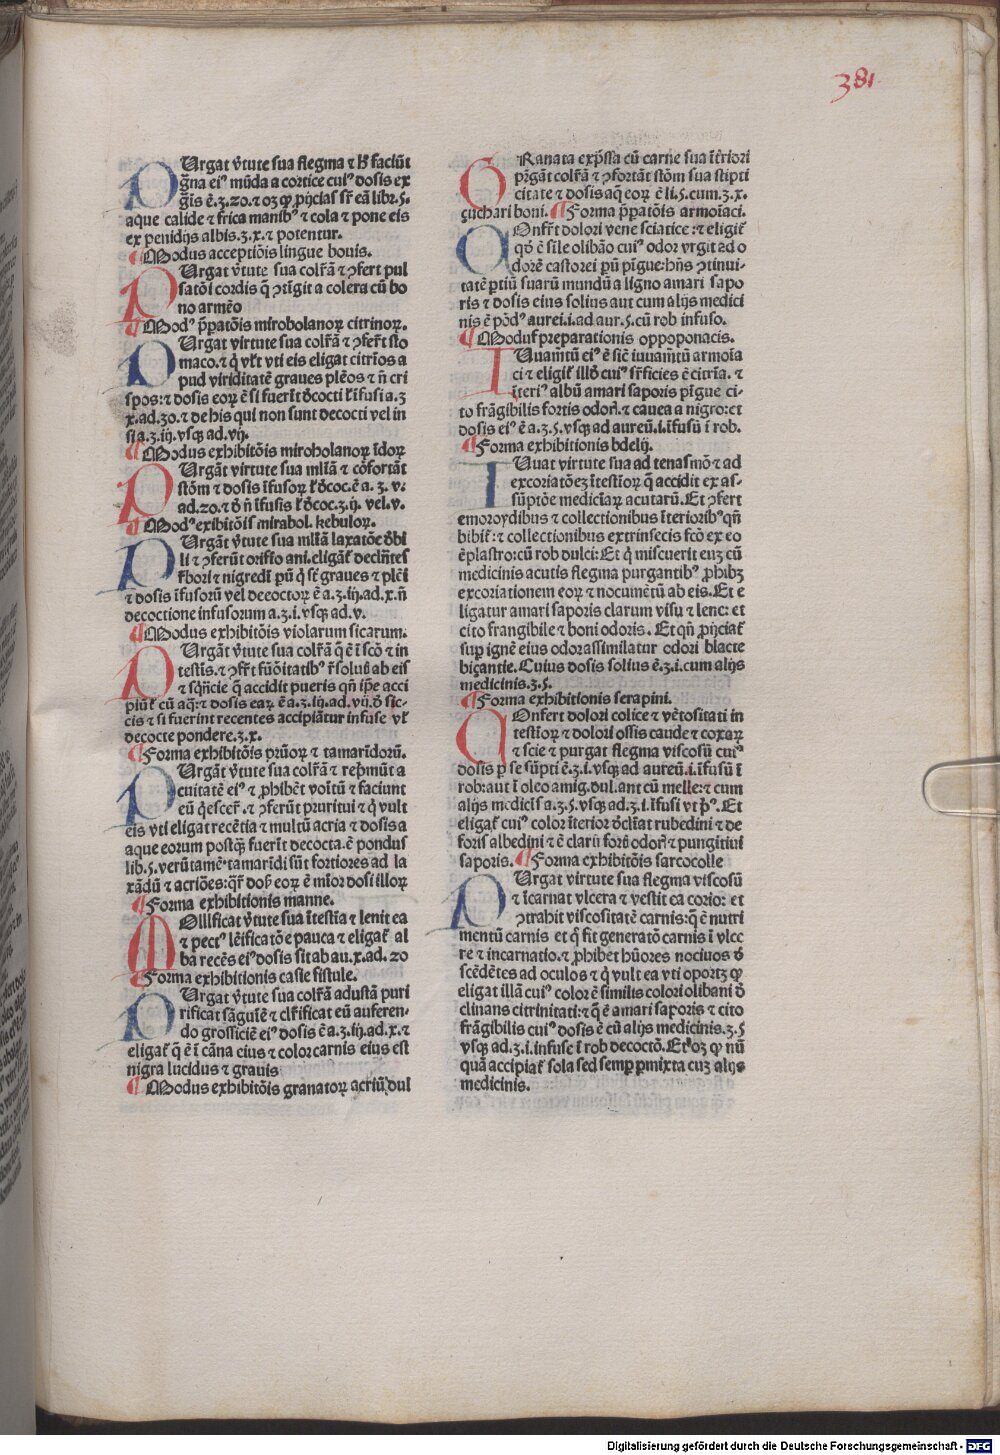 381
PUrgat v̄tute sua flegma ⁊ h̄ faciūt
g̃na ei⁹ mūda a cortice cui⁹ dosis ex
aque calide ⁊ frica manib⁹ ⁊ cola ⁊ pone eis
ex penidijs albis.ʒ.x.⁊ potentur.
¶Modus acceptiōis lingue bouis.
PUrgat v̄tute sua colr̄ā ⁊ ꝯfert pul
satōi cordis q̄ ꝯtīgit a colera cū bo
no armēo
¶Mod⁹ p̄patōis mirobolanoꝝ citrinoꝝ.
PUrgat virtute sua colr̄ā ⁊ ꝯfert sto
maco.⁊ q̇ vl't vti eis eligat citrīos a
pud viriditatē graues plēos ⁊ n̄ cri
spos:⁊ dosis eoꝝ ē si fuerīt d̄cocti l' īfusi a.ʒ
x.ad.20.⁊ de his qui non sunt decocti vel in
si a.ʒ.iij.vsqꝫ ad.vij.
¶Modus exhibitōis miroholanoꝝ īdoꝝ
PUrgāt virtute sua mlīā ⁊ cōfortāt
stōm ⁊ dosis īfusoꝝ l' d̄coc.ē a.ʒ.v.
ad.20.⁊ d̄ n̄ īfusis l' d̄coc.ʒ.ij.vel.v.
¶Mod⁹ exibitōis mirabol.kebuloꝝ.
PUrgāt v̄tute sua mlīā laxatōe d̄bi
li ⁊ ꝯferūt orifīo ani.eligāt̄ declīn̄tes
⁊ dosis īfusorū vel decoctoꝝ ē a.ʒ.iij.ad.x.n̄
decoctione infusorum a.ʒ.i.vsqꝫ ad.v.
¶Modus exhibitōis violarum sicarum.
PUrgāt v̄tute sua colr̄ā q̄ ē ī scō ⁊ in
⁊ sq̄n̄cie q̄ accidit pueris qn̄ ip̄e acci
piūt̄ cū aq̄:⁊ dosis eaꝝ ē a.ʒ.iij.ad.vij.d̄ sic-
cis ⁊ si fuerint recentes accipiātur infuse vl'
decocte pondere.ʒ.x.
¶Forma exhibitōis prūoꝝ ⁊ tamarīdorū.
PUrgāt v̄tute sua colr̄ā ⁊ rep̄mūt a
cuitatē ei⁹ ⁊ ꝓhibēt voītū ⁊ faciunt
eū q̇escer̄.⁊ ꝯferūt pruritui ⁊ q̇ vult
eis vti eligat recētia ⁊ multū acria ⁊ dosis a
aque eorum postqꝫ fuerīt decocta.ē pondus
lib.5.verūtamē tamarīdi sūt fortiores ad la
xādū ⁊ acriōes:q̄r dos̄ eoꝝ ē mīor dosi illoꝝ
¶Forma exhibitionis manne.
MOllificat v̄tute sua ītestīa ⁊ lenit ea
⁊ pect⁹ lēificatōe pauca ⁊ eligat̄ al
ba recēs ei⁹ dosis sit ab au.x.ad.20
¶Forma exhibitionis casie fistule.
PUrgat v̄tute sua colr̄ā adustā puri
rificat sāguīē ⁊ cl̄rificat eū auferen-
do grossiciē ei⁹ dosis ē a.ʒ.iij.ad.x.⁊
eligat̄ q̄ ē ī cāna eius ⁊ color carnis eius est
nigra lucidus ⁊ grauis
¶Modus exhibitōis granatoꝝ acriū.dul
GRanata exp̄ssa cū carne sua īt̄riori
pr̄gāt colr̄ā ⁊ ꝯfortāt stōm sua stipti
citate ⁊ dosis aq̄ eoꝝ ē li.5.cum.ʒ.x.
çuchari boni. ¶Forma p̄patōis armoīaci.
COnfr̄t dolori vene sciatice:⁊ eligit̄
qd̄ ē sīle olibāo cui⁹ odor vrgit ad o
dorē castorei pū pīgue:hn̄s ꝯtinui-
tatē ꝑtiū suarū mundū a ligno amari sapo
ris ⁊ dosis eius solius aut cum alijs medici
nis ē pōd⁹ aurei.i.ad aur.5.cū rob infuso.
¶Modus preparationis oppoponacis.
IUuam̄tū ei⁹ ē sic̄ iuuam̄tū armoīa
ci ⁊ eligit̄ illd̄ cui⁹ sr̄ficies ē citrīa.⁊
īteri⁹ albū amari saporis pīgue ci-
to frāgibilis fortis odor̄.⁊ cauea a nigro:et
dosis ei⁹ ē a.ʒ.5.vsqꝫ ad aureū.i.īfusū ī rob.
¶Forma exhibitionis bdelij.
IUuat virtute sua ad tenasmō ⁊ ad
excoriatōeʒ ītestīoꝝ q̄ accidit ex as-
sūptōe medicīaꝝ acutarū.Et ꝯfert
emoroydibus ⁊ collectionibus īteriorib⁹ qn̄
bibit̄:⁊ collectionibus extrinsecis fcō ex eo
ēplastro:cū rob dulci:Et q̇ miscuerit euʒ cū
medicinis acutis flegma purgantib⁹ ꝓhibʒ
excoriationem eoꝝ ⁊ nocumētū ab eis.Et e
ligatur amari saporis clarum visu ⁊ lene:et
cito frangibile ⁊ boni odoris.Et qn̄ ꝓijciat̄
sup ignē eius odor assimilatur odori blacte
biçantie.Cuius dosis solius ē.ʒ.i.cum alijs
medicinis.ʒ.5.
¶Forma exhibitionis serapini.
COnfert dolori colice ⁊ vētositati in
testīoꝝ ⁊ dolori ossis caude ⁊ coxaꝝ
⁊ scie ⁊ purgat flegma viscosū cui⁹
dosis ꝑ se sūpti ē.ʒ.i.vsqꝫ ad aureū.i.īfusū ī
rob:aut ī oleo amig.dul.ant cū melle:⁊ cum
alijs medicīs a.ʒ.5.vsqꝫ ad.ʒ.i.īfusi vt p⁹.Et
eligat̄ cui⁹ color īterior d̄clīat rubedini ⁊ de
foris albedini ⁊ ē clarū forū odor̄ ⁊ pungitiui
saporis. ¶Forma exhibitōis sarcocolle
PUrgat virtute sua flegma viscosū
⁊ īcarnat vlcera ⁊ vestit ea corio: et
ꝯtrahit viscositatē carnis:q̄ ē nutri
mentū carnis et q̇ fit generatō carnis ī vlce
re ⁊ incarnatio.⁊ ꝓhibet hūores nociuos d̄
scēdētes ad oculos ⁊ q̇ vult ea vti oportʒ ꝙ
eligat illā cui⁹ color ē similis colori olibani d̄
clinans citrinitati:⁊ q̄ ē amari saporis ⁊ cito
frāgibilis cui⁹ dosis ē cū alijs medicinis.ʒ.5
vsqꝫ ad.ʒ.i.infuse ī rob decoctō.Et oʒ ꝙ nū
quā accipiat̄ sola sed semꝑ ꝑmixta cuʒ alijs
medicinis.
Digitalisierung gefördert durch die Deutsche Forschungsgemeinschaft - DFG